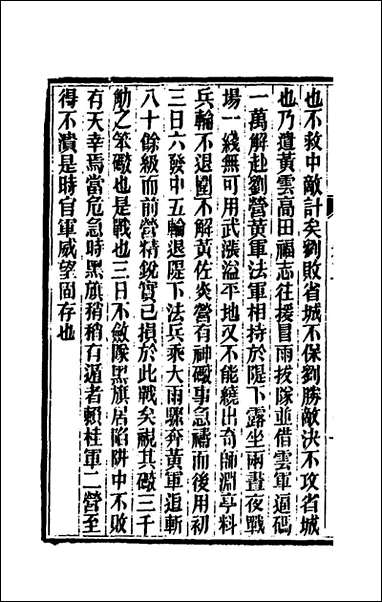 也不救中敵計矣劉敗省城不保劉勝敵決不攻省城
也乃遣黃雲高田福志往援冒雨拔隊並借雲軍逼碼
一萬解赴劉營黃軍法軍相持於隄下露坐兩晝夜戰
場一綫無可用武漲溢平地又不能繞出奇師淵亭料
兵輪不退圍不解黃佐炎營有神礮事急禱而後用初
三日六發中五輪退隄下法兵乘大雨驟奔黃軍追斬
八十餘級而前營精銳實已損於此戰矣視其礮三千
觔之笨礮也是戰也三日不斂隊黑旗居陷阱中不敗
有天幸焉當危急時黑旗稍稍有遁者賴桂軍二營至
得不潰是時自軍威望固存也